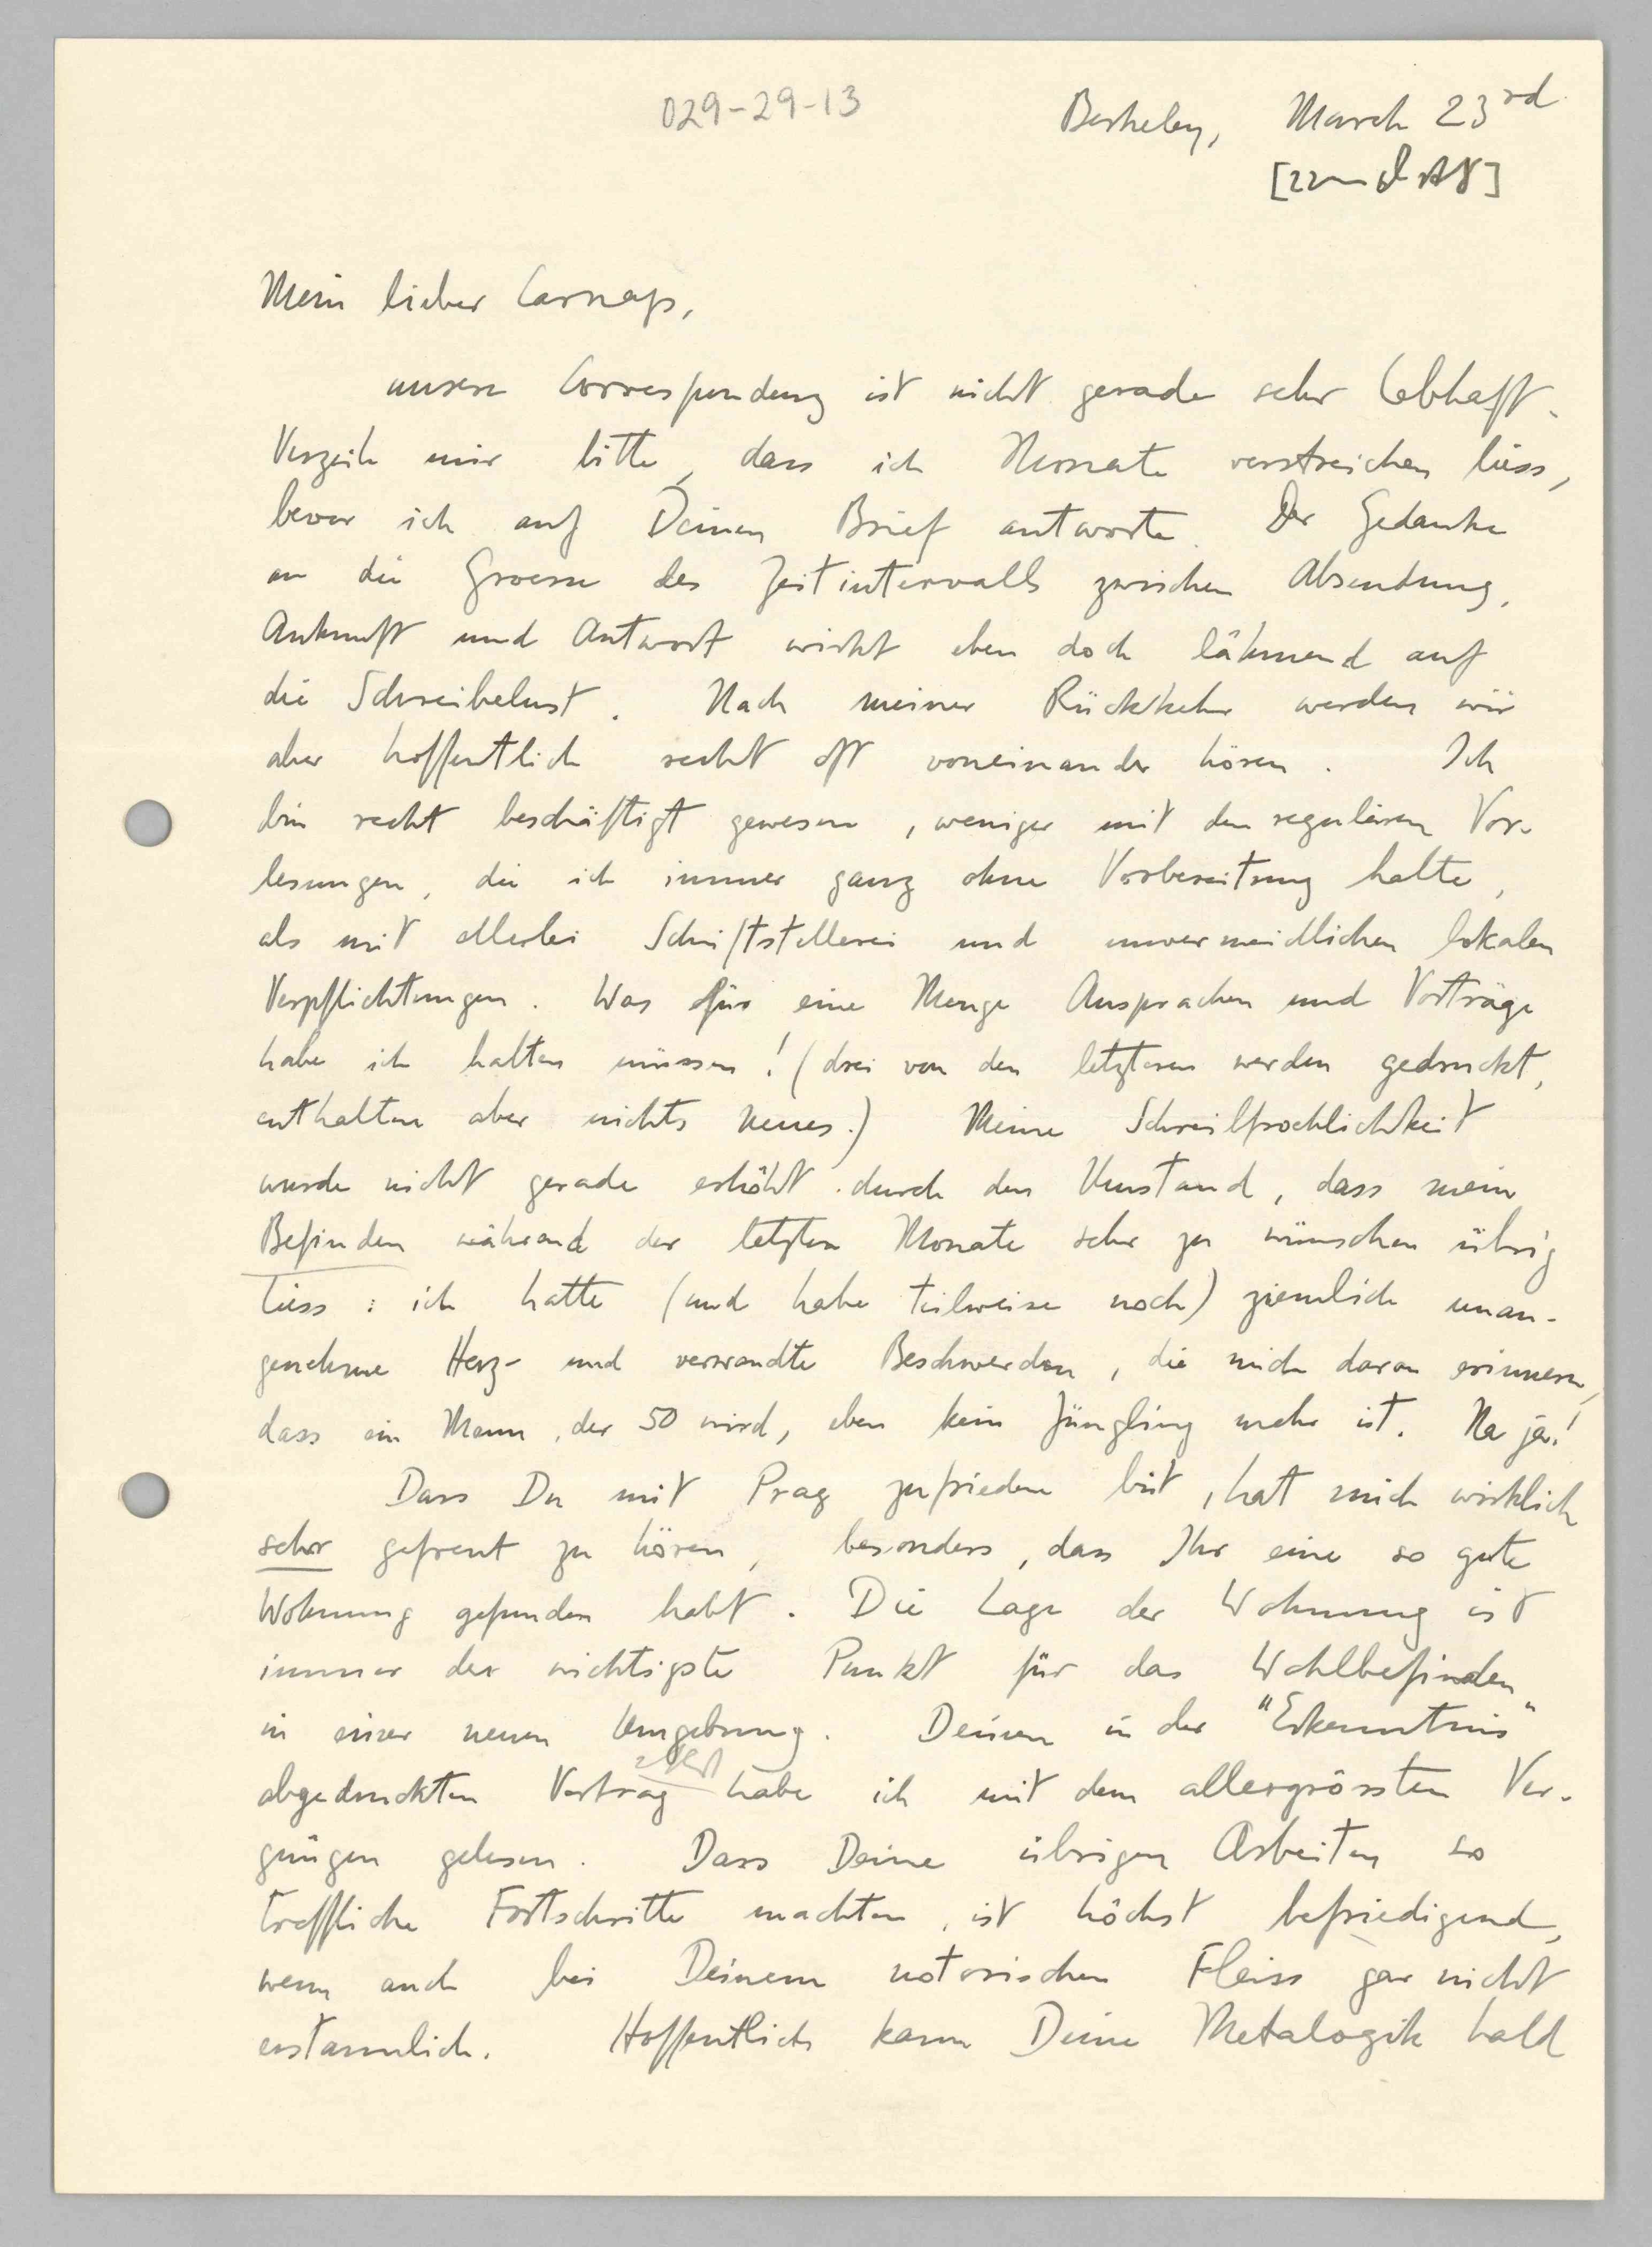 029-29-13
Berkeley, March 23rd
Mein lieber Carnap,
unsere Correspondenz ist nicht gerade sehr lebhaft.
Verzeih mir bitte, dass ich Monate verstreichen liess,
bevor ich auf Deinen Brief antworte. Der Gedanke
an die Groesse des Zeitintervalls zwischen Absendung,
Ankunft und Antwort wirkt eben doch lähmend auf
die Schreibelust. Nach meiner Rückkehr werden wir
aber hoffentlich recht oft voneinander hören. Ich
bin recht beschäftigt gewesen, weniger mit den regulären Vor-
lesungen, die ich immer ganz ohne Vorbereitung halte,
als mit allerlei Schriftstellerei und unvermeidlichen lokalen
Verpflichtungen. Was für eine Menge Ansprachen und Vorträge
habe ich halten müssen! (drei von den letzteren werden gedruckt,
enthalten aber nichts neues.) Meine Schreibfroehlichkeit
wurde nicht gerade erhöht durch den Umstand, dass mein
Befinden während der letzten Monate sehr zu wünschen übrig
liess: ich hatte (und habe teilweise noch) ziemlich unan-
genehme Herz- und verwandte Beschwerden, die mich daran erinnern,
dass ein Mann, der 50 wird, eben kein Jüngling mehr ist. Na ja!
Dass Du mit Prag zufrieden bist, hat mich wirklich
sehr gefreut zu hören, besonders, dass Ihr eine so gute
Wohnung gefunden habt. Die Lage der Wohnung ist
immer der wichtigste Punkt für das Wohlbefinden
in einer neuen Umgebung. Deinen in der "Erkenntnis"
abgedruckten Vortrag habe ich mit dem allergrössten Ver-
gnügen gelesen. Dass Deine übrigen Arbeiten so
treffliche Fortschritte machten, ist höchst befriedigend,
wenn auch bei Deinem notorischen Fleiss gar nicht
erstaunlich. Hoffentlich kann Deine Metalogik bald